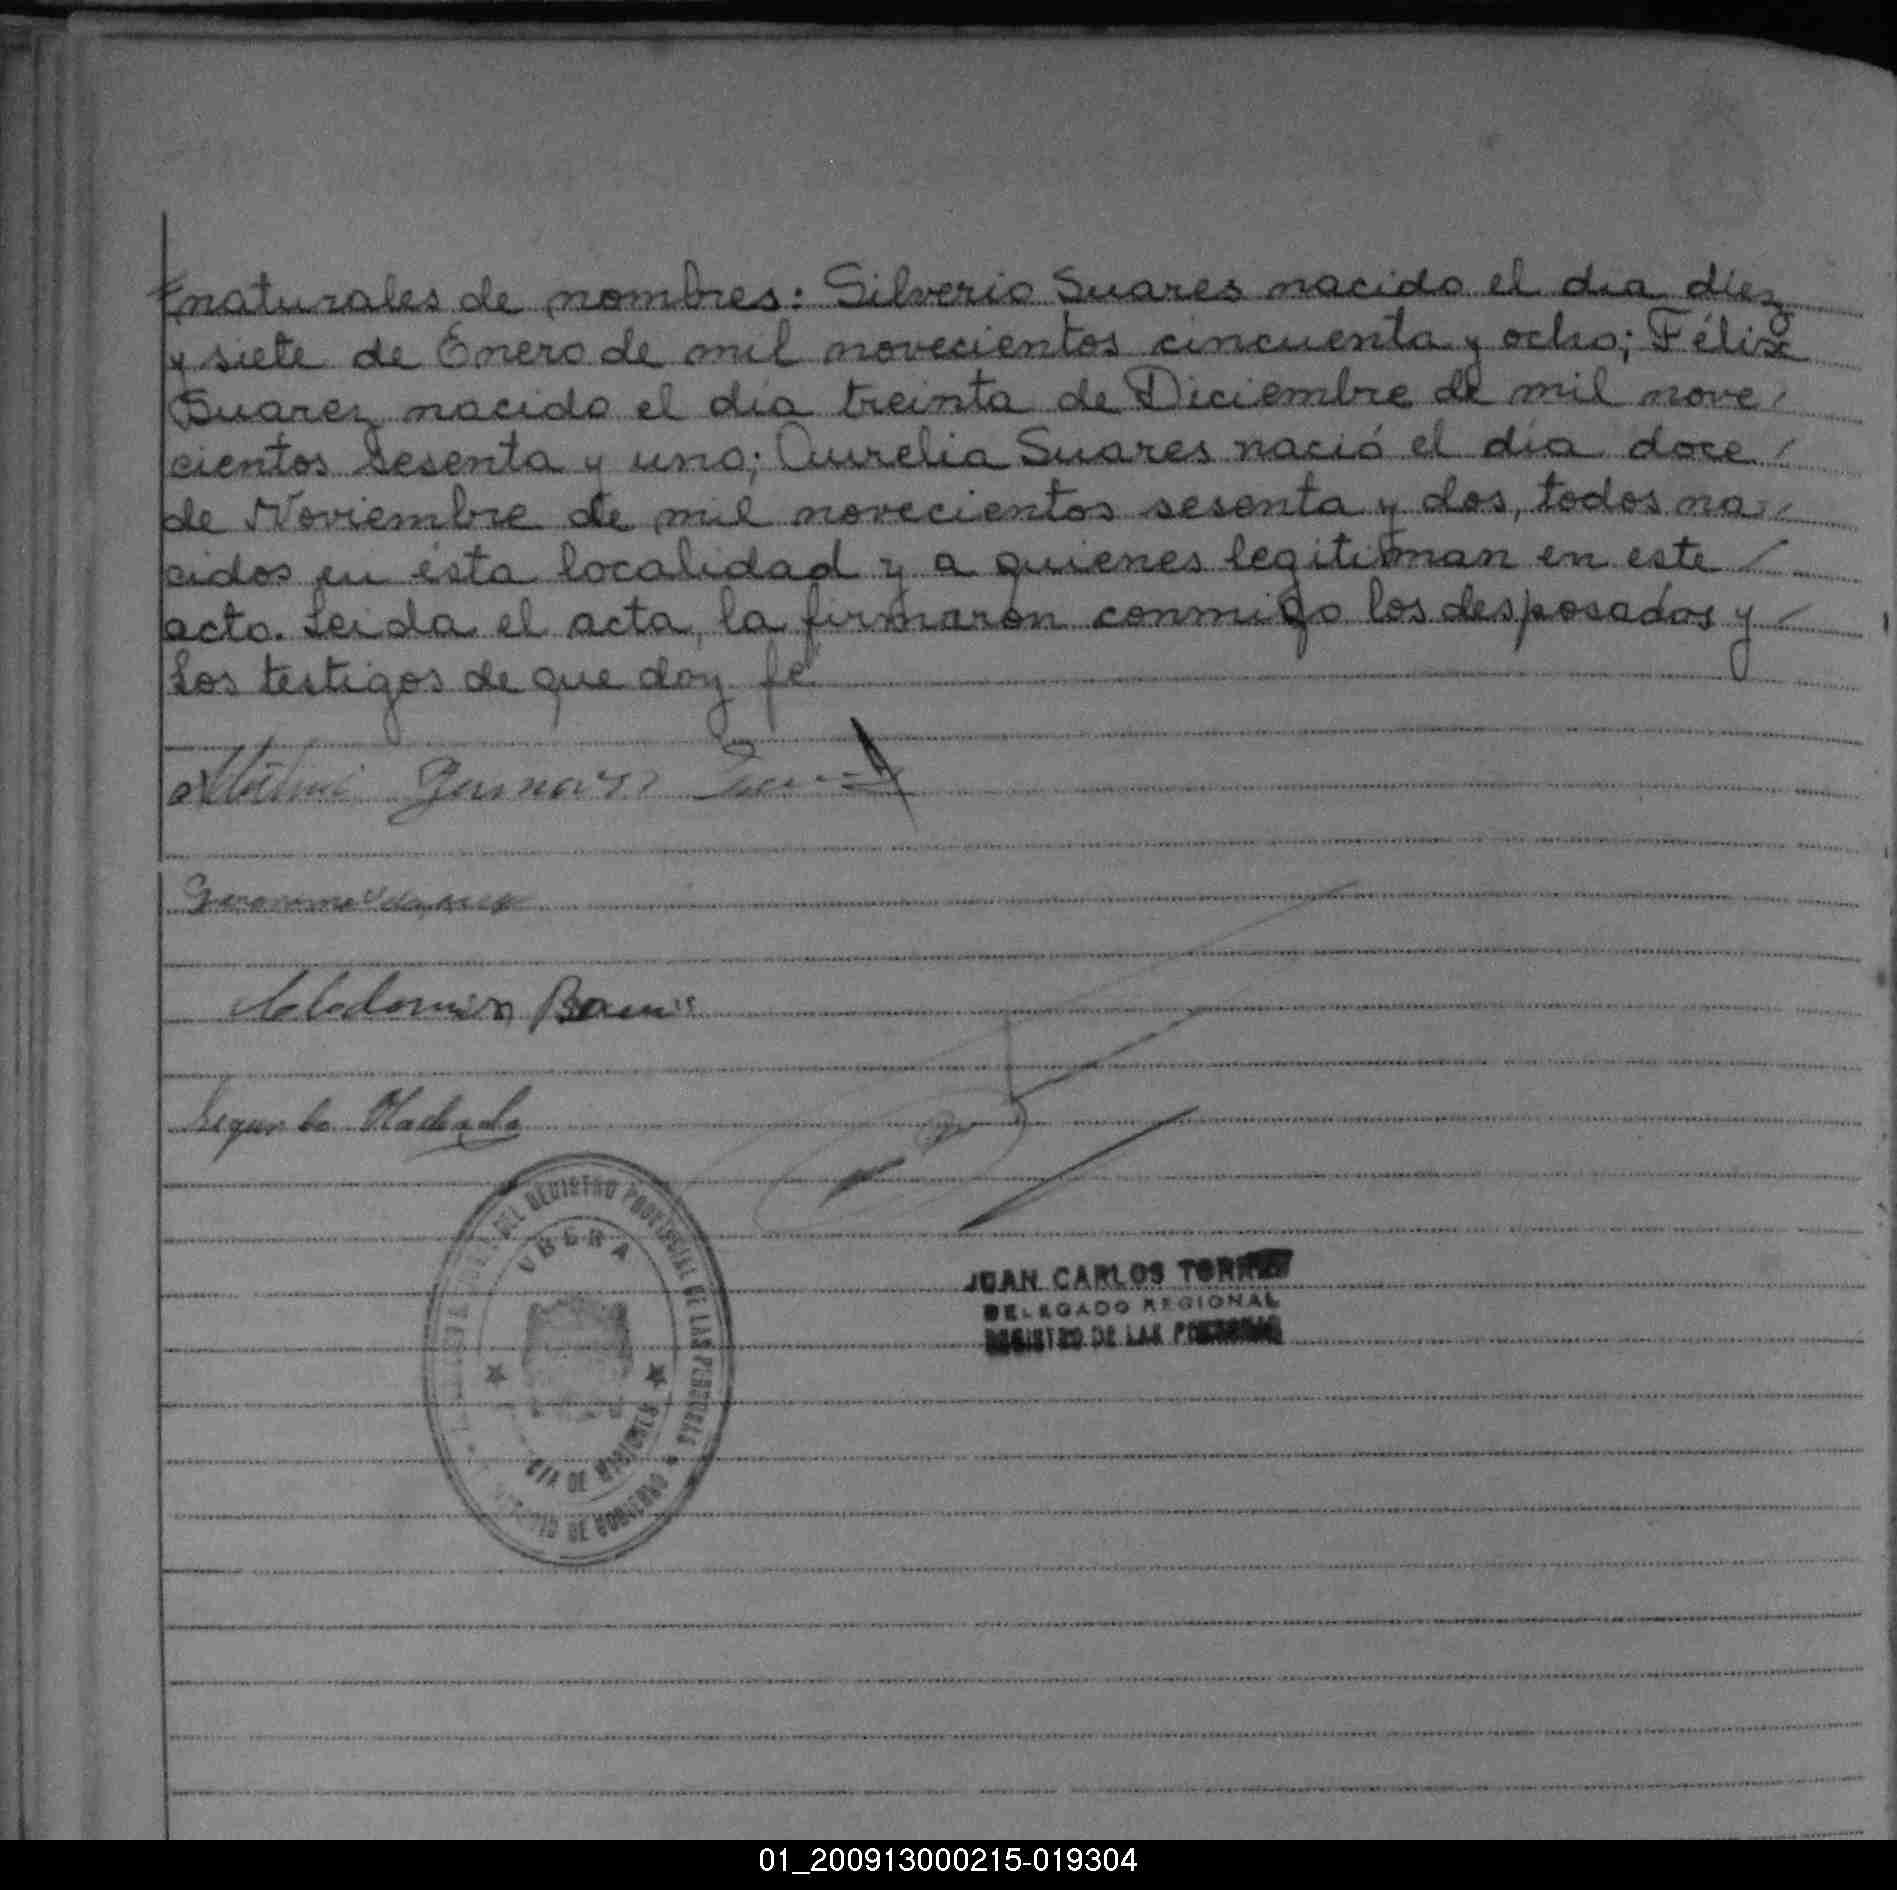 naturales de nombres: Silverio Suares nacido el dia diez
y siete de Enero de mil novecientos cincuenta y ocho; Félix
Suarez nacido el día treinta de Diciembre de mil nove
cientos sesenta y uno; Aurelia Suares nació el día doce
de Noviembre de mil novecientos sesenta y dos, todos na
cidos en ésta localidad y a quienes legitiman en este
acto. Leida el acta, la firmaron conmigo los desposados y
los testigos de que doy fé
Segundo Machado
DEL REGISTRO PROVINCIAL DE LAS PERSONAS
UBERA
DE GOBIERNO
JUAN CARLOS TORRES
DELEGADO REGIONAL
REGISTRO DE LAS PERSONAS
01_200913000215-019304